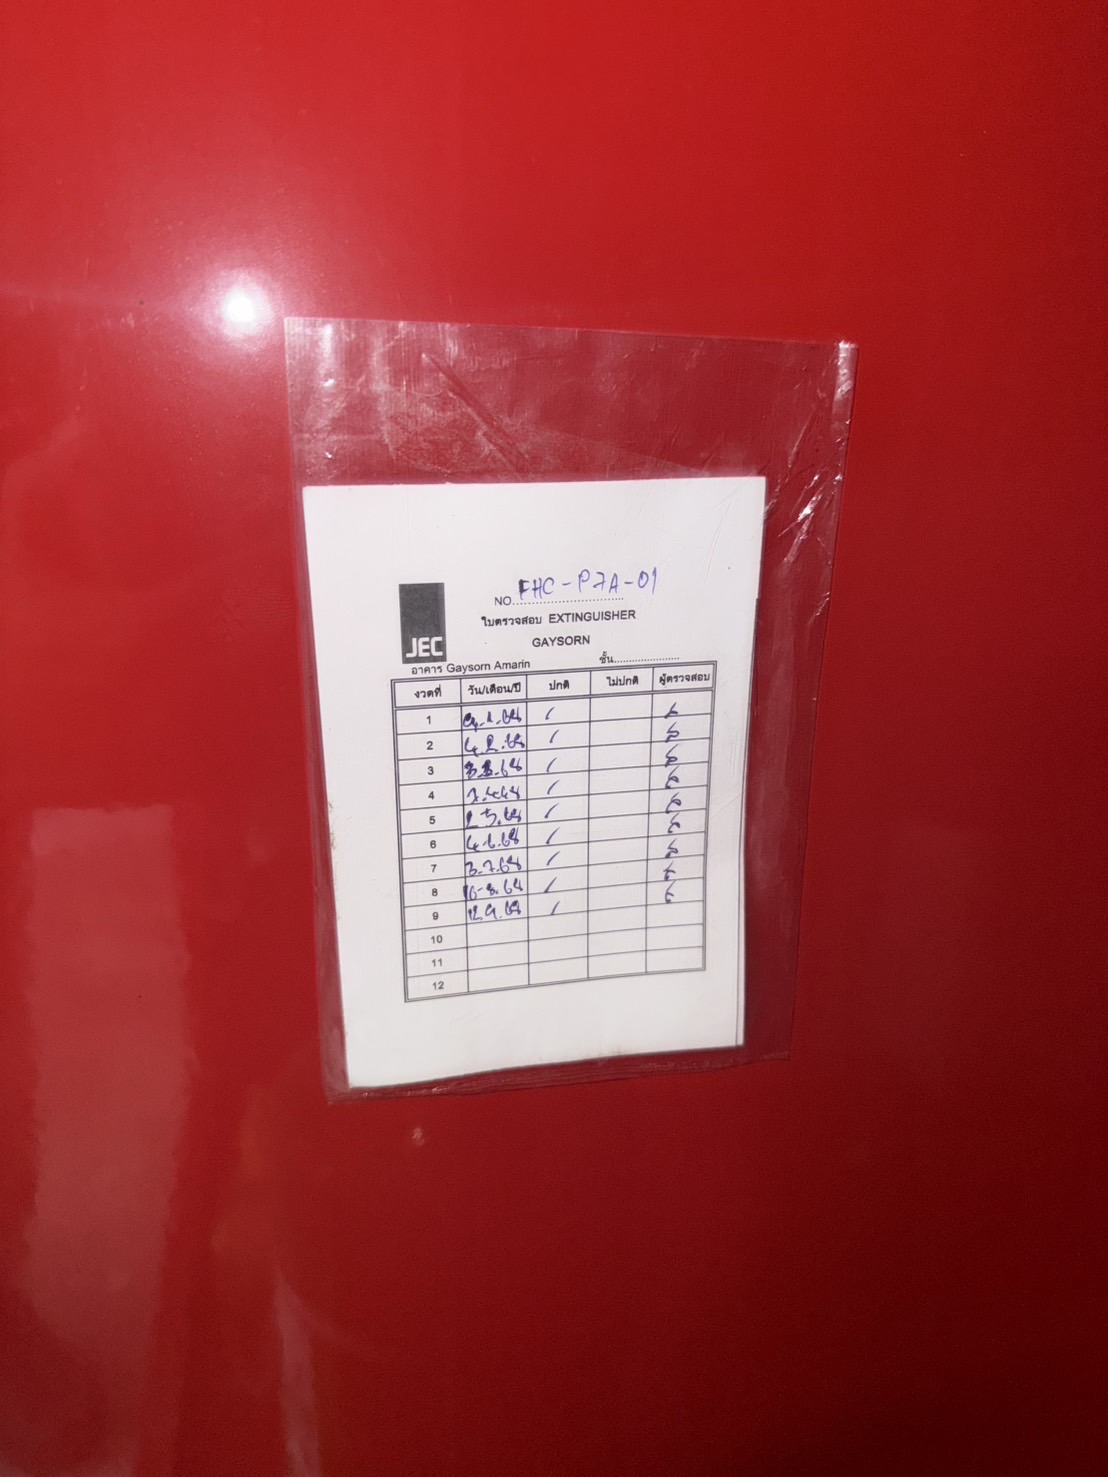 NO. FHC-P7A-01
ใบตรวจสอบ EXTINGUISHER
GAYSORN
JEC
อาคาร Gaysorn Amarin ชั้น......................
งวดที่ วัน/เดือน/ปี ปกติ ไม่ปกติ ผู้ตรวจสอบ
1 /
2 4.2.68 /
3 3.3.68 /
4 /
5 2.5.68 /
6 4.6.68 /
7 3.7.68 /
8 16-8.68 /
9 12.9.68 /
10
11
12